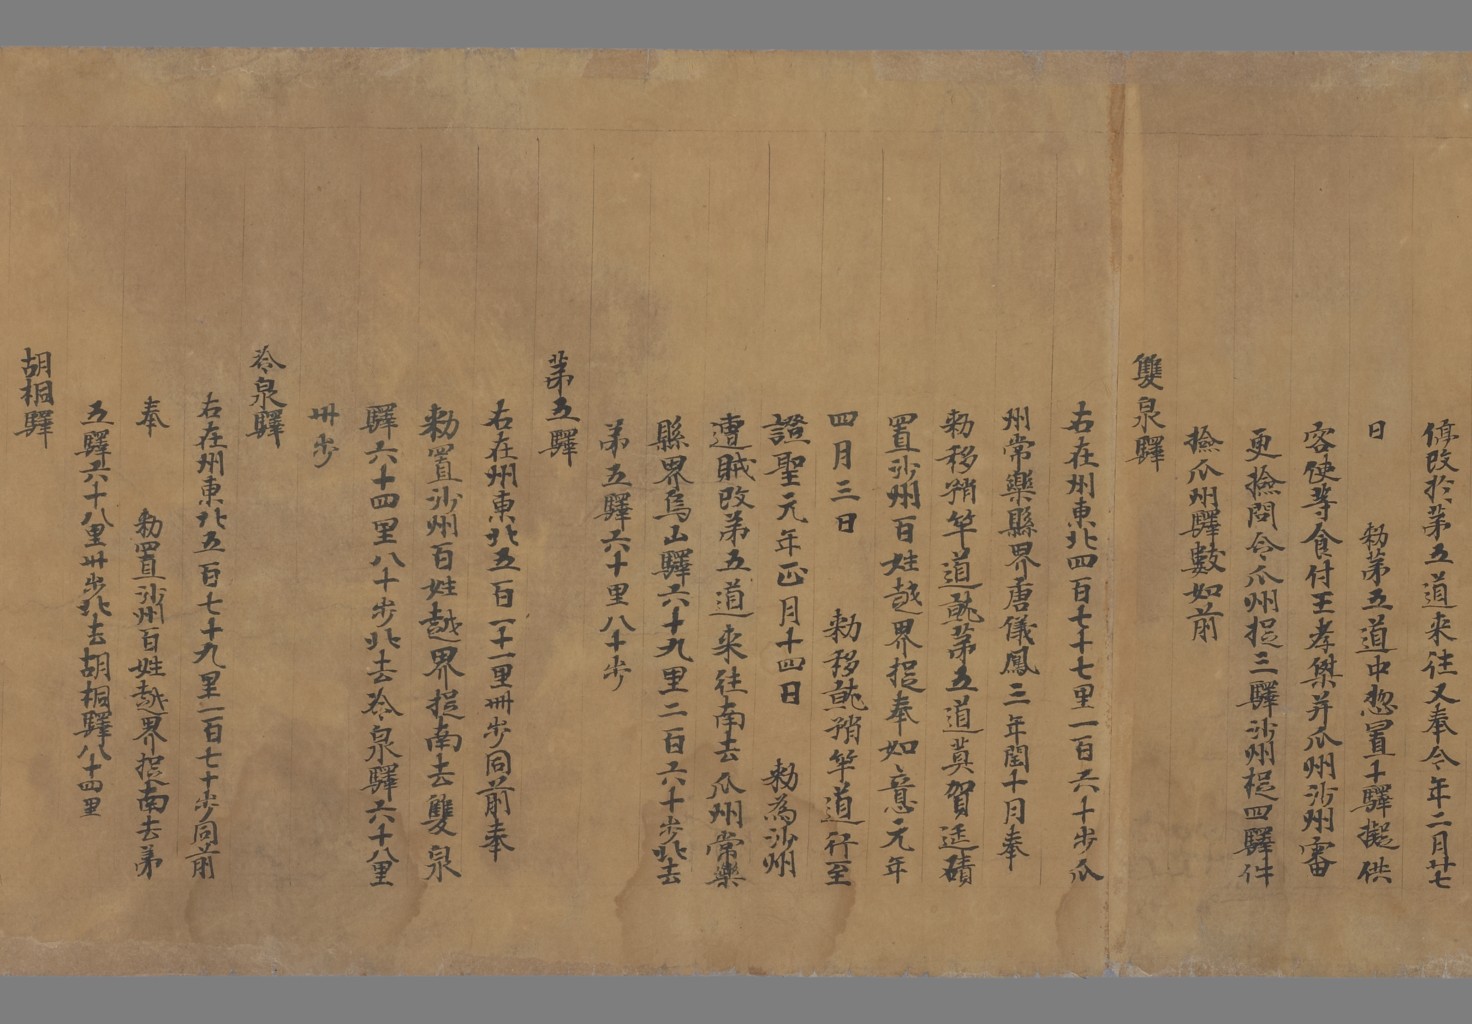 停改於第五道来往又奉今年二月廿七
日　勑第五道中惣置十驛擬供
客使等食付王孝傑并瓜州沙州審
更撿問令瓜州捉三驛沙州捉四驛件
撿瓜州驛數如前
雙泉驛
右在州東北四百七十七里一百六十步瓜
州常樂縣界唐儀鳳三年閏十月奉
勑移稍竿道就第五道莫賀延磧
置沙州百姓越界捉奉如意元年
四月三日　勑移就稍竿道行至
證聖元年正月十四日　勑為沙州
遭賊改第五道来往南去瓜州常樂
縣界烏山驛六十九里二百六十步北去
第五驛六十里八十步
第五驛
右在州東北五百一十一里卌步同前奉
勑置沙州百姓越界捉南去雙泉
驛六十四里八十步北去冷泉驛六十八里
卌步
冷泉驛
右在州東北五百七十九里一百七十步同前
奉　勑置沙州百姓越界捉南去第
五驛六十八里卌步北去胡桐驛八十四里
胡桐驛